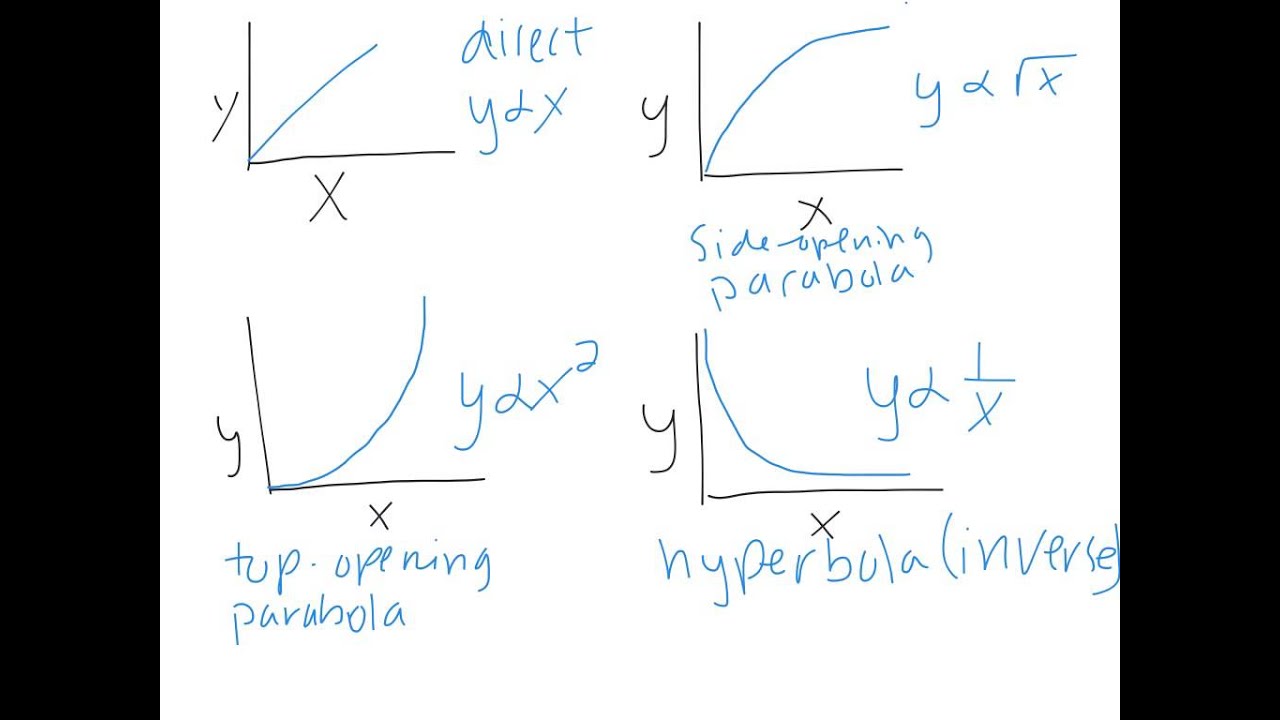 direct
y ∝ x
y
X
y ∝ √x
y
x
side-opening
parabola
y ∝ x²
y
x
top-opening
parabola
y ∝ 1/x
y
x
hyperbola (inverse)